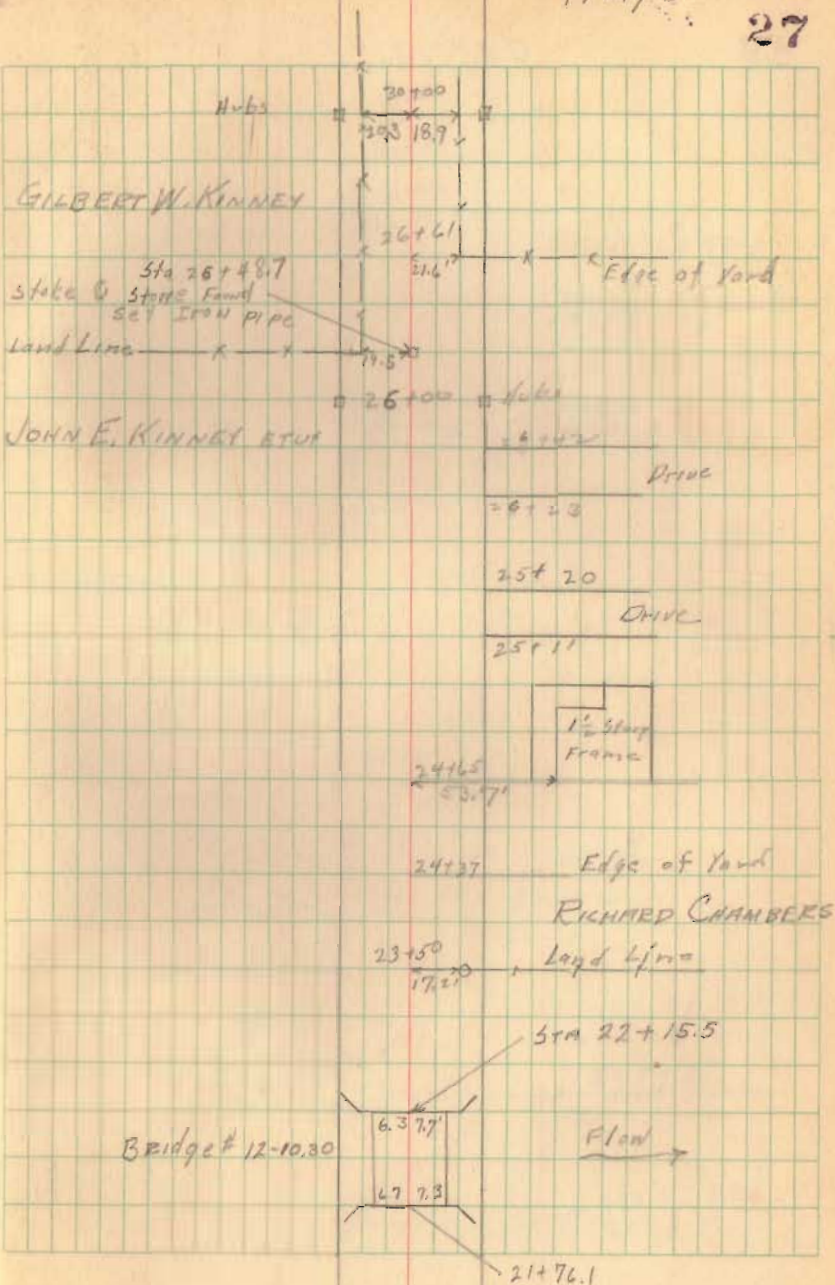 27
30+00
Hubs
20.3 18.9
GILBERT W. KINNEY
26+61
21.6'
Edge of Yard
Sta 26+48.7
Stake & Stone Found
Set Iron Pipe
Land Line
19.5
26+00 Hubs
JOHN E. KINNEY ETUX
Drive
25+20
Drive
25+11
1½ Story
Frame
24+65
53.7'
24+37 Edge of Yard
RICHARD CHAMBERS
23+50 Land Line
17.2'
STA 22+15.5
6.3 7.7'
Bridge # 12-10.30
Flow
6.7 7.3
21+76.1